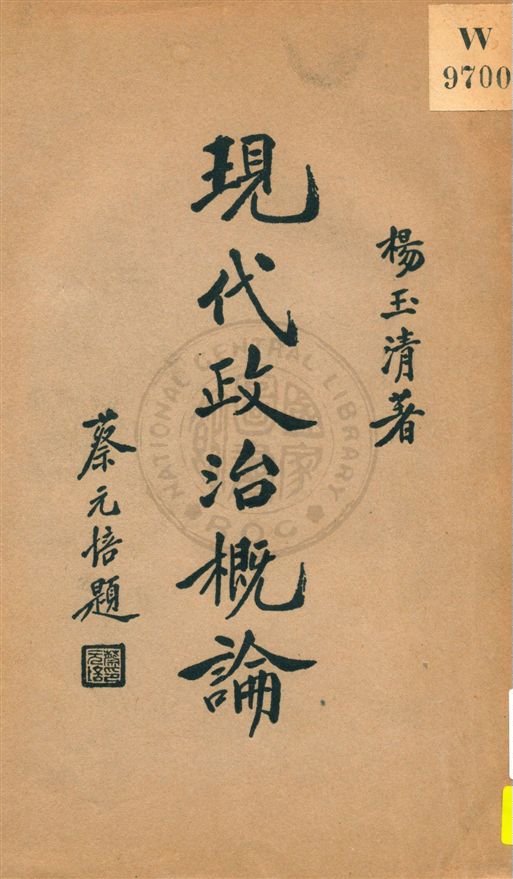 W
9700
楊玉清著
現代政治概論
蔡元培題
蔡元培
NATIONAL CENTRAL LIBRARY
R.O.C
國家圖書館